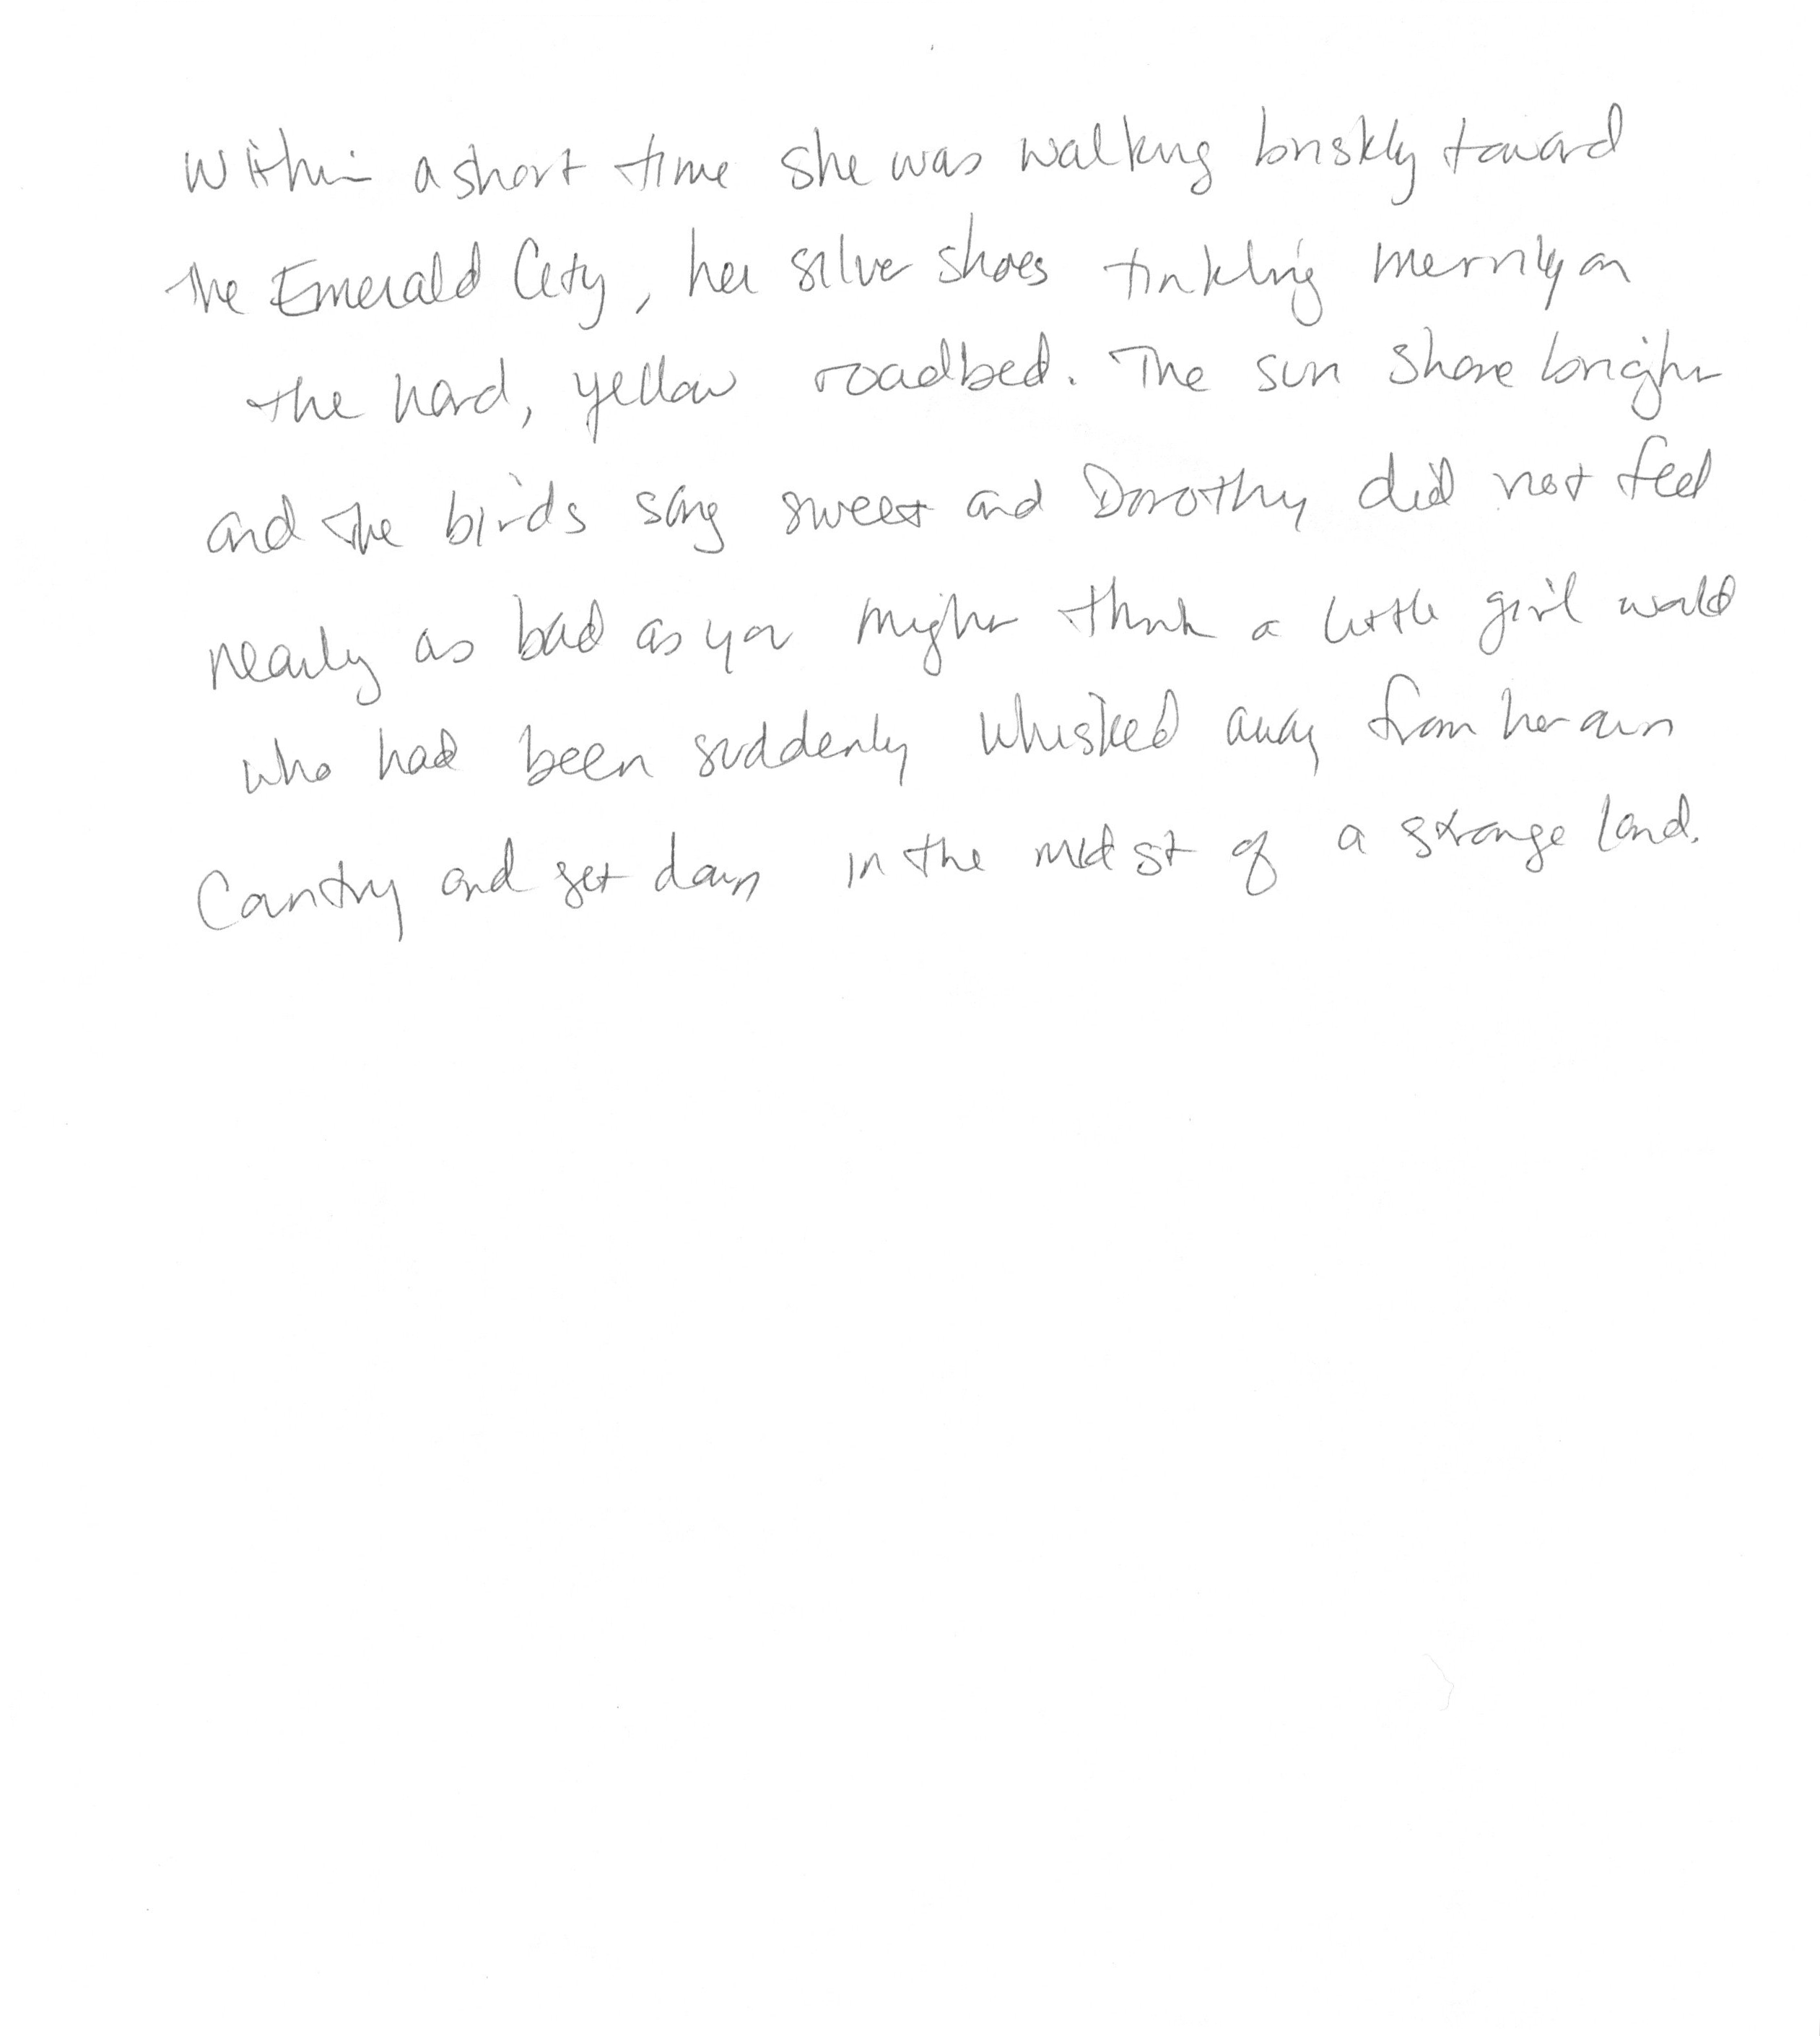 Within a short time she was walking briskly toward
the Emerald City, her silver shoes tinkling merrily on
the hard, yellow roadbed. The sun shone bright
and the birds sang sweet and Dorothy did not feel
nearly as bad as you might think a little girl would
who had been suddenly whisked away from her own
Country and set down in the midst of a strange land.